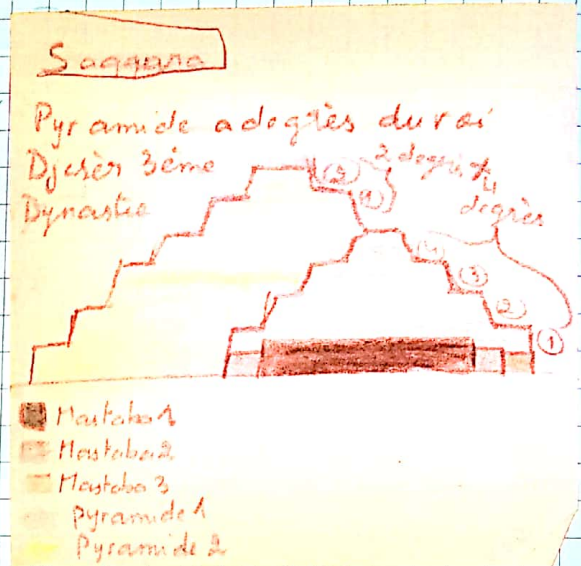 Saqqara
Pyramide a degrès du roi
Djesèr 3éme
Dynastie
2 degrès
4
degrès
②
①
④
③
②
①
Mastaba 1
Mastaba 2
Mastaba 3
pyramide 1
Pyramide 2